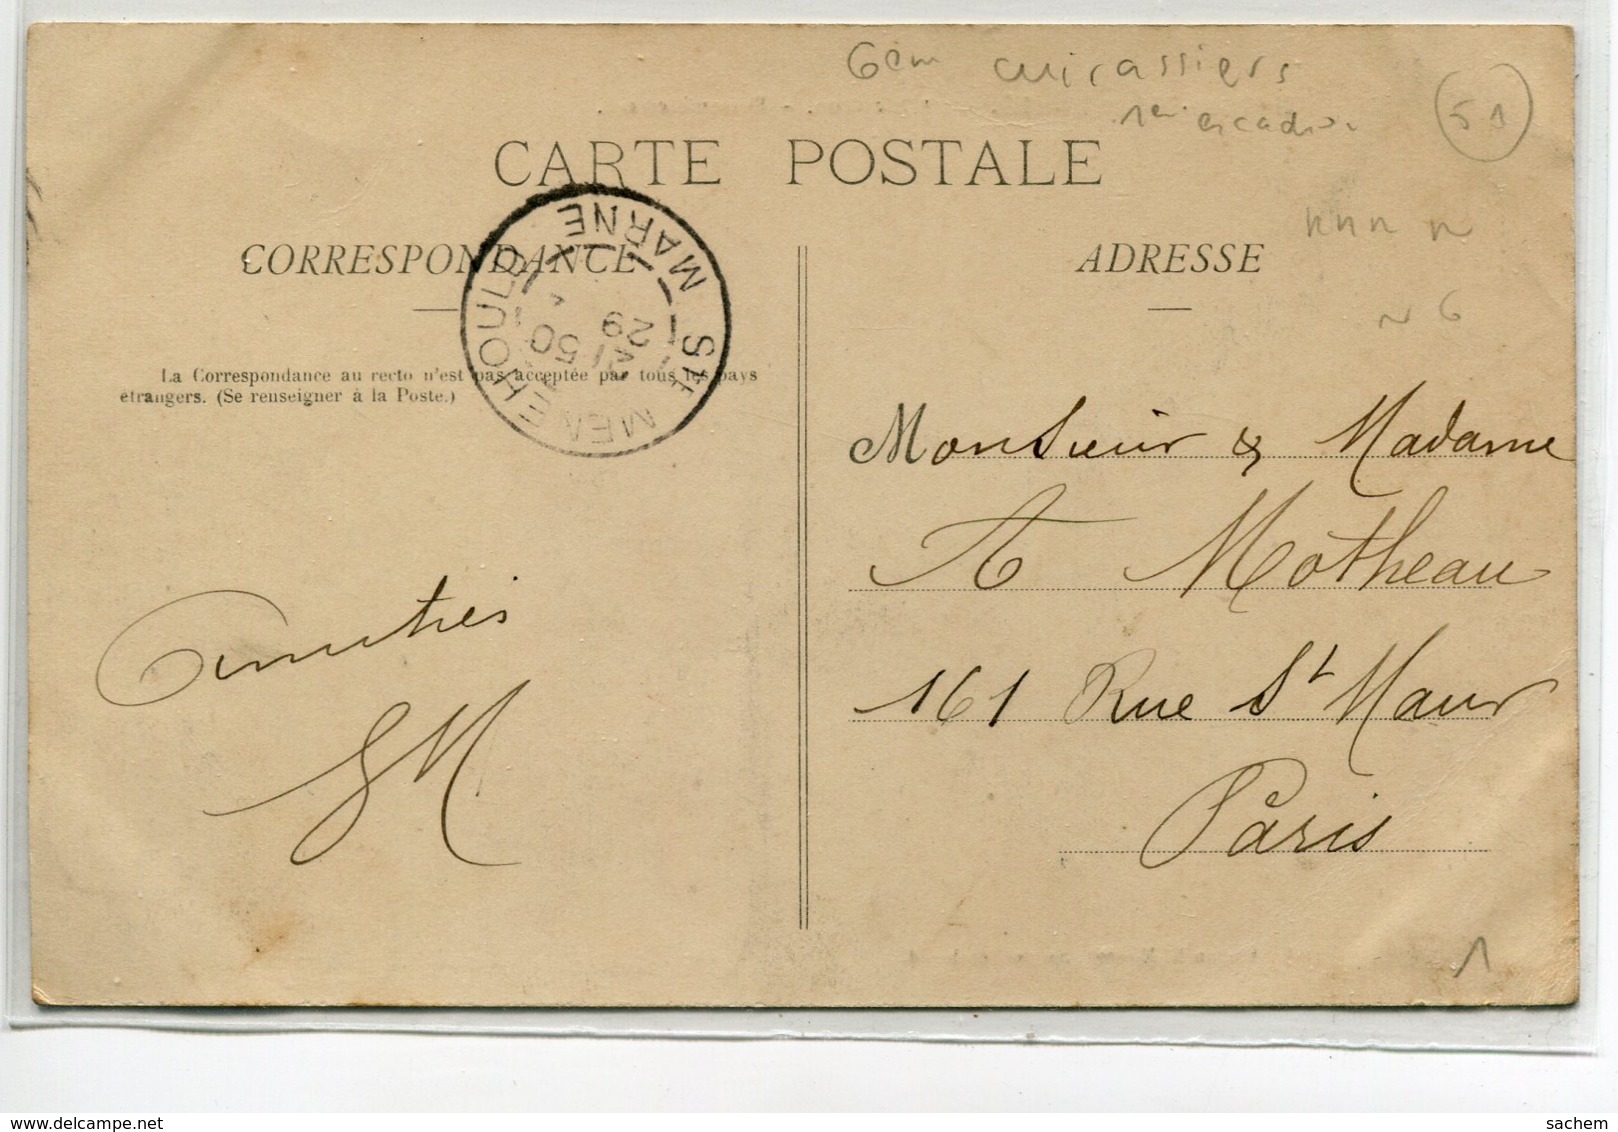 6em cuirassiers
1er escadron
51
CARTE POSTALE
CORRESPONDANCE
ADRESSE
N 6
STE MENEHOULD MARNE
29
50
La Correspondance au recto n'est pas acceptée par tous les pays
étrangers. (Se renseigner à la Poste.)
Monsieur & Madame
A Motheau
161 Rue St Maur
Paris
amitiés
SM
1
delcampe.net
sachem